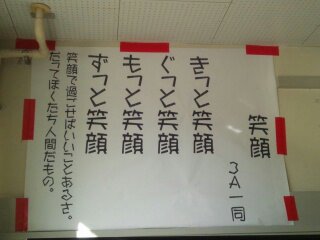 笑顔
3A一同
きっと笑顔
ぐっと笑顔
もっと笑顔
ずっと笑顔
笑顔で過ごせばいいことあるさ。
だってぼくたち人間だもの。